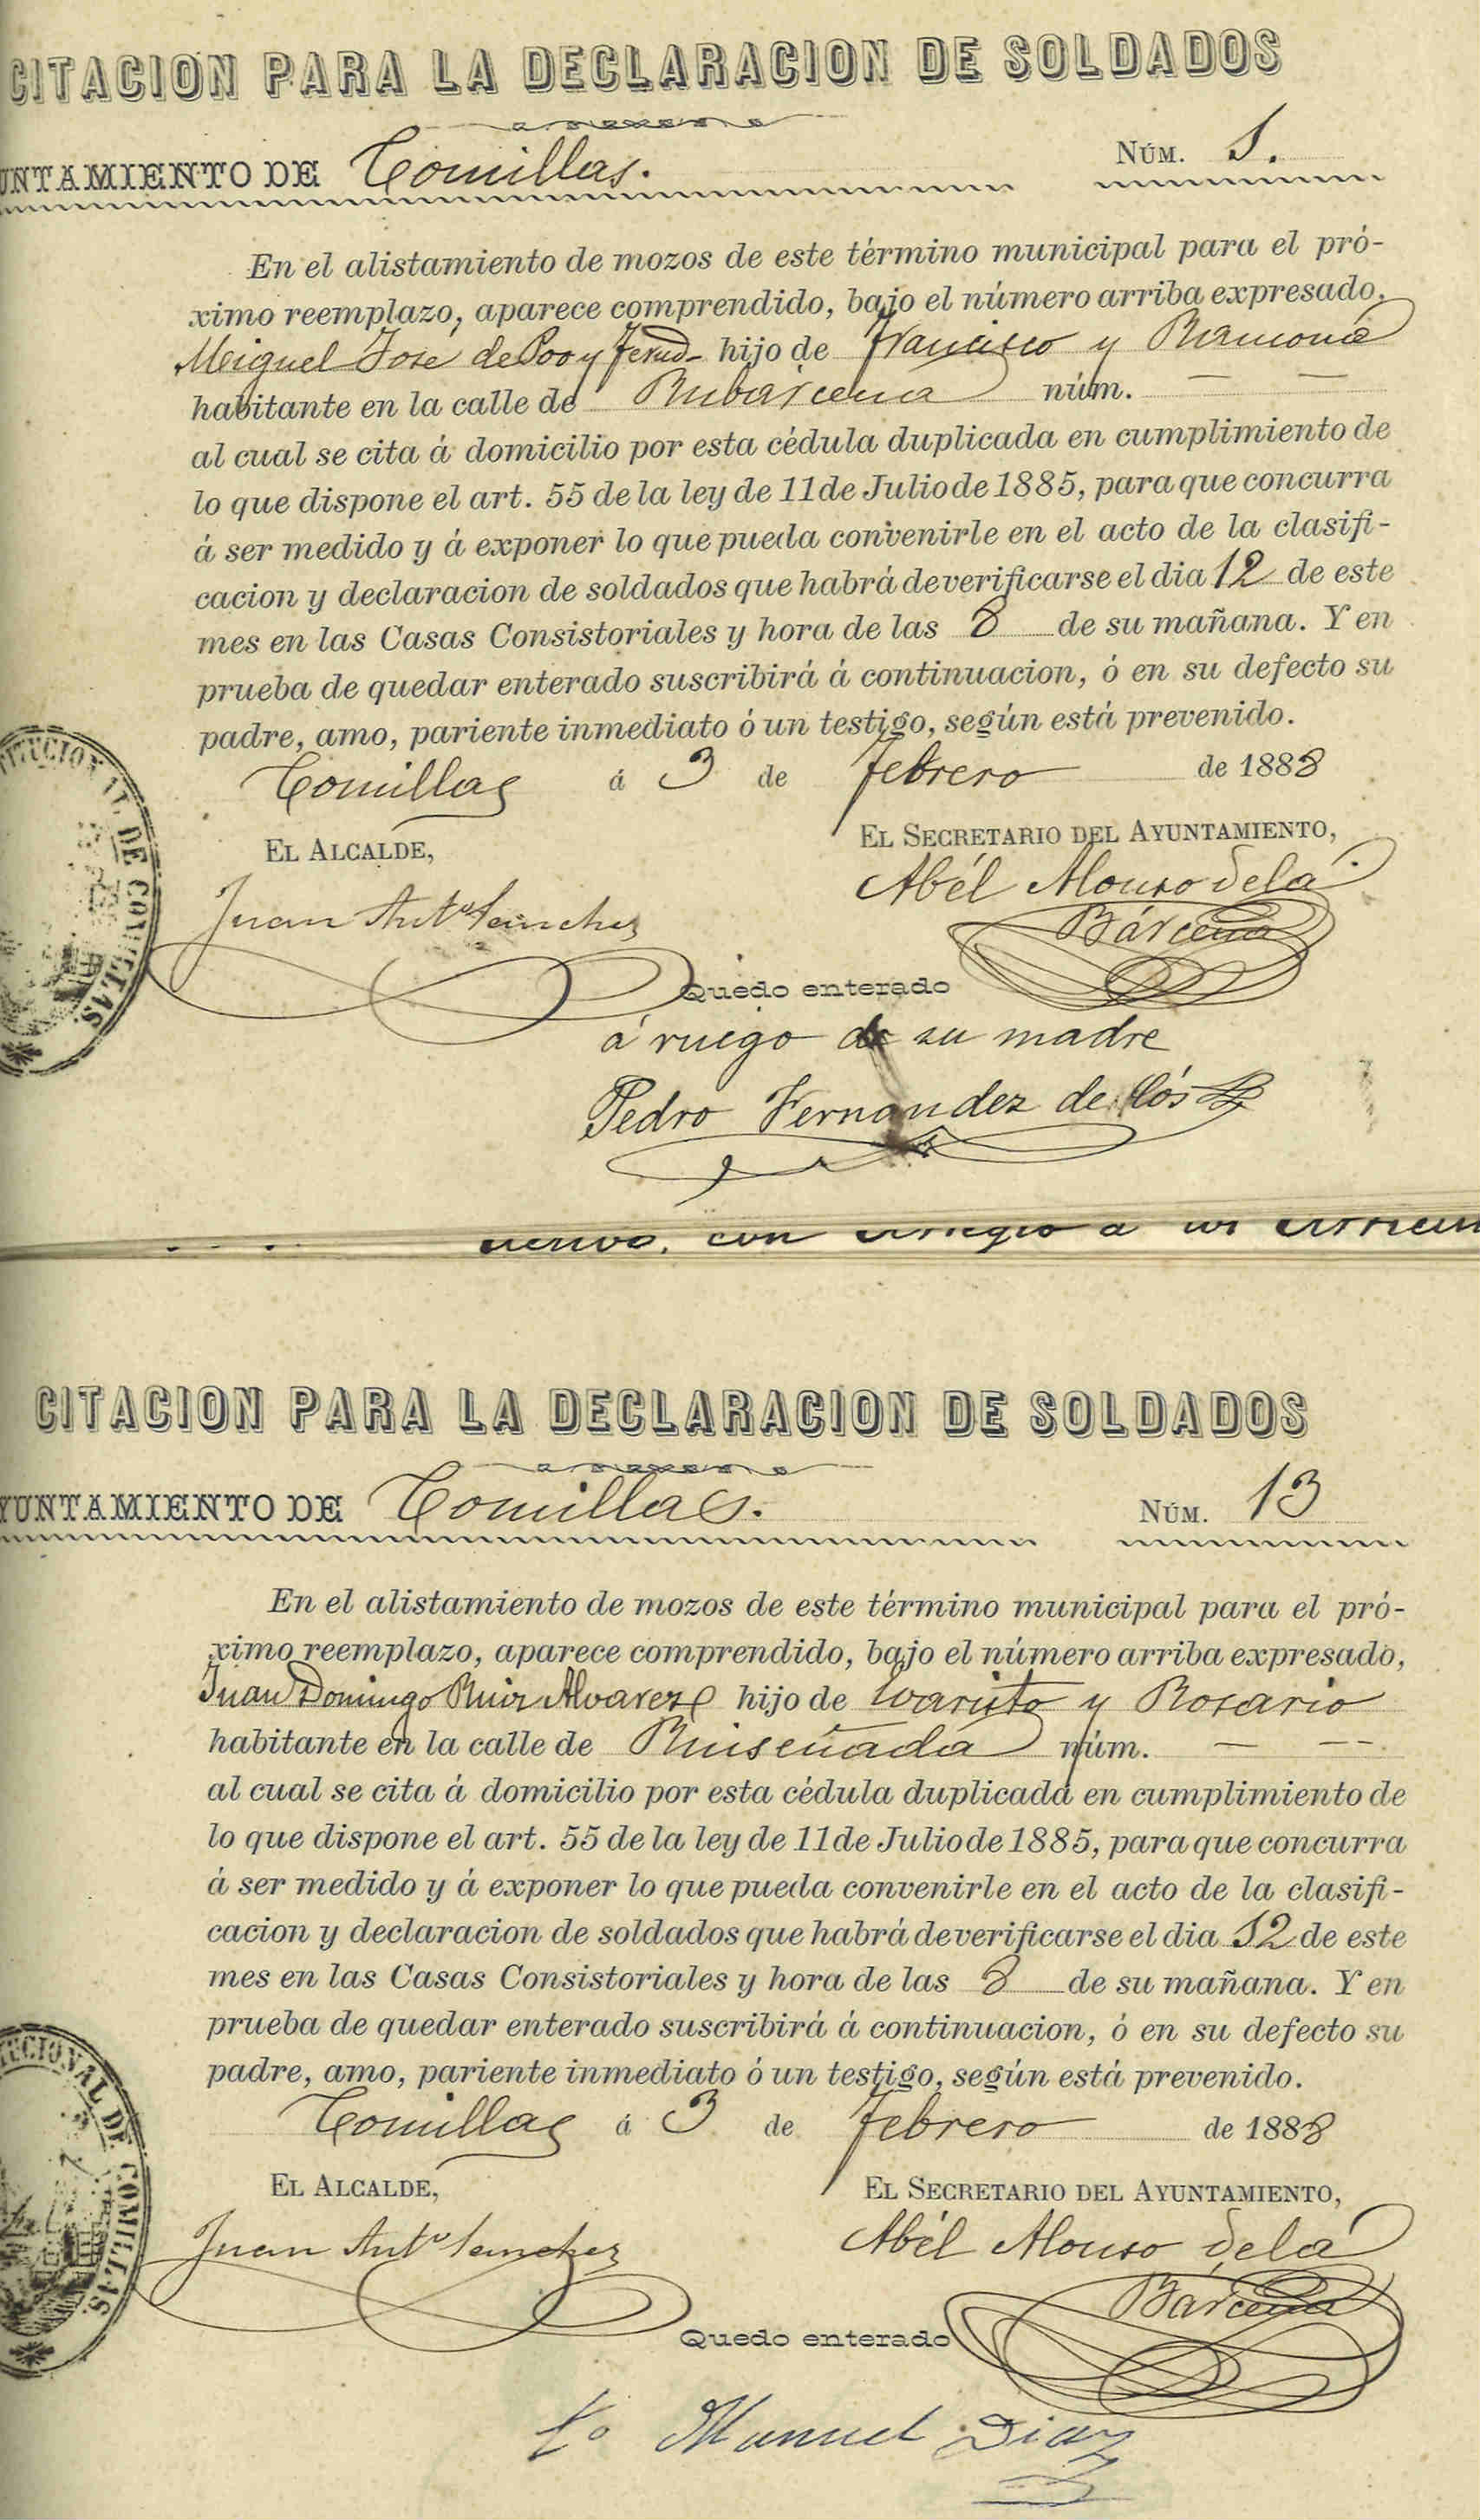 CITACION PARA LA DECLARACION DE SOLDADOS
UNTAMIENTO DE Comillas. NÚM. 1.
En el alistamiento de mozos de este término municipal para el pró-
ximo reemplazo, aparece comprendido, bajo el número arriba expresado,
Miguel José de Poo y hijo de Francisco y Ramona
habitante en la calle de Rubarcena núm. — —
al cual se cita á domicilio por esta cédula duplicada en cumplimiento de
lo que dispone el art. 55 de la ley de 11 de Julio de 1885, para que concurra
á ser medido y á exponer lo que pueda convenirle en el acto de la clasifi-
cacion y declaracion de soldados que habrá de verificarse el dia 12 de este
mes en las Casas Consistoriales y hora de las 8 de su mañana. Y en
prueba de quedar enterado suscribirá á continuacion, ó en su defecto su
padre, amo, pariente inmediato ó un testigo, según está prevenido.
Comillas á 3 de febrero de 1888
EL ALCALDE, EL SECRETARIO DEL AYUNTAMIENTO,
Juan Antº Sanchez Abél Alonso de la
Bárcena
Quedo enterado
á ruego de su madre
Pedro Fernandez de Cós
con arreglo a
CITACION PARA LA DECLARACION DE SOLDADOS
YUNTAMIENTO DE Comillas. NÚM. 13
En el alistamiento de mozos de este término municipal para el pró-
ximo reemplazo, aparece comprendido, bajo el número arriba expresado,
Juan Domingo Ruiz Alvarez hijo de Evaristo y Rosario
habitante en la calle de Ruiseñada núm. — —
al cual se cita á domicilio por esta cédula duplicada en cumplimiento de
lo que dispone el art. 55 de la ley de 11 de Julio de 1885, para que concurra
á ser medido y á exponer lo que pueda convenirle en el acto de la clasifi-
cacion y declaracion de soldados que habrá de verificarse el dia 12 de este
mes en las Casas Consistoriales y hora de las 8 de su mañana. Y en
prueba de quedar enterado suscribirá á continuacion, ó en su defecto su
padre, amo, pariente inmediato ó un testigo, según está prevenido.
Comillas á 3 de febrero de 1888
EL ALCALDE, EL SECRETARIO DEL AYUNTAMIENTO,
Juan Antº Sanchez Abél Alonso de la
Bárcena
Quedo enterado
Manuel Diaz
DE COMILLAS.
CIONAL DE COMILLAS.